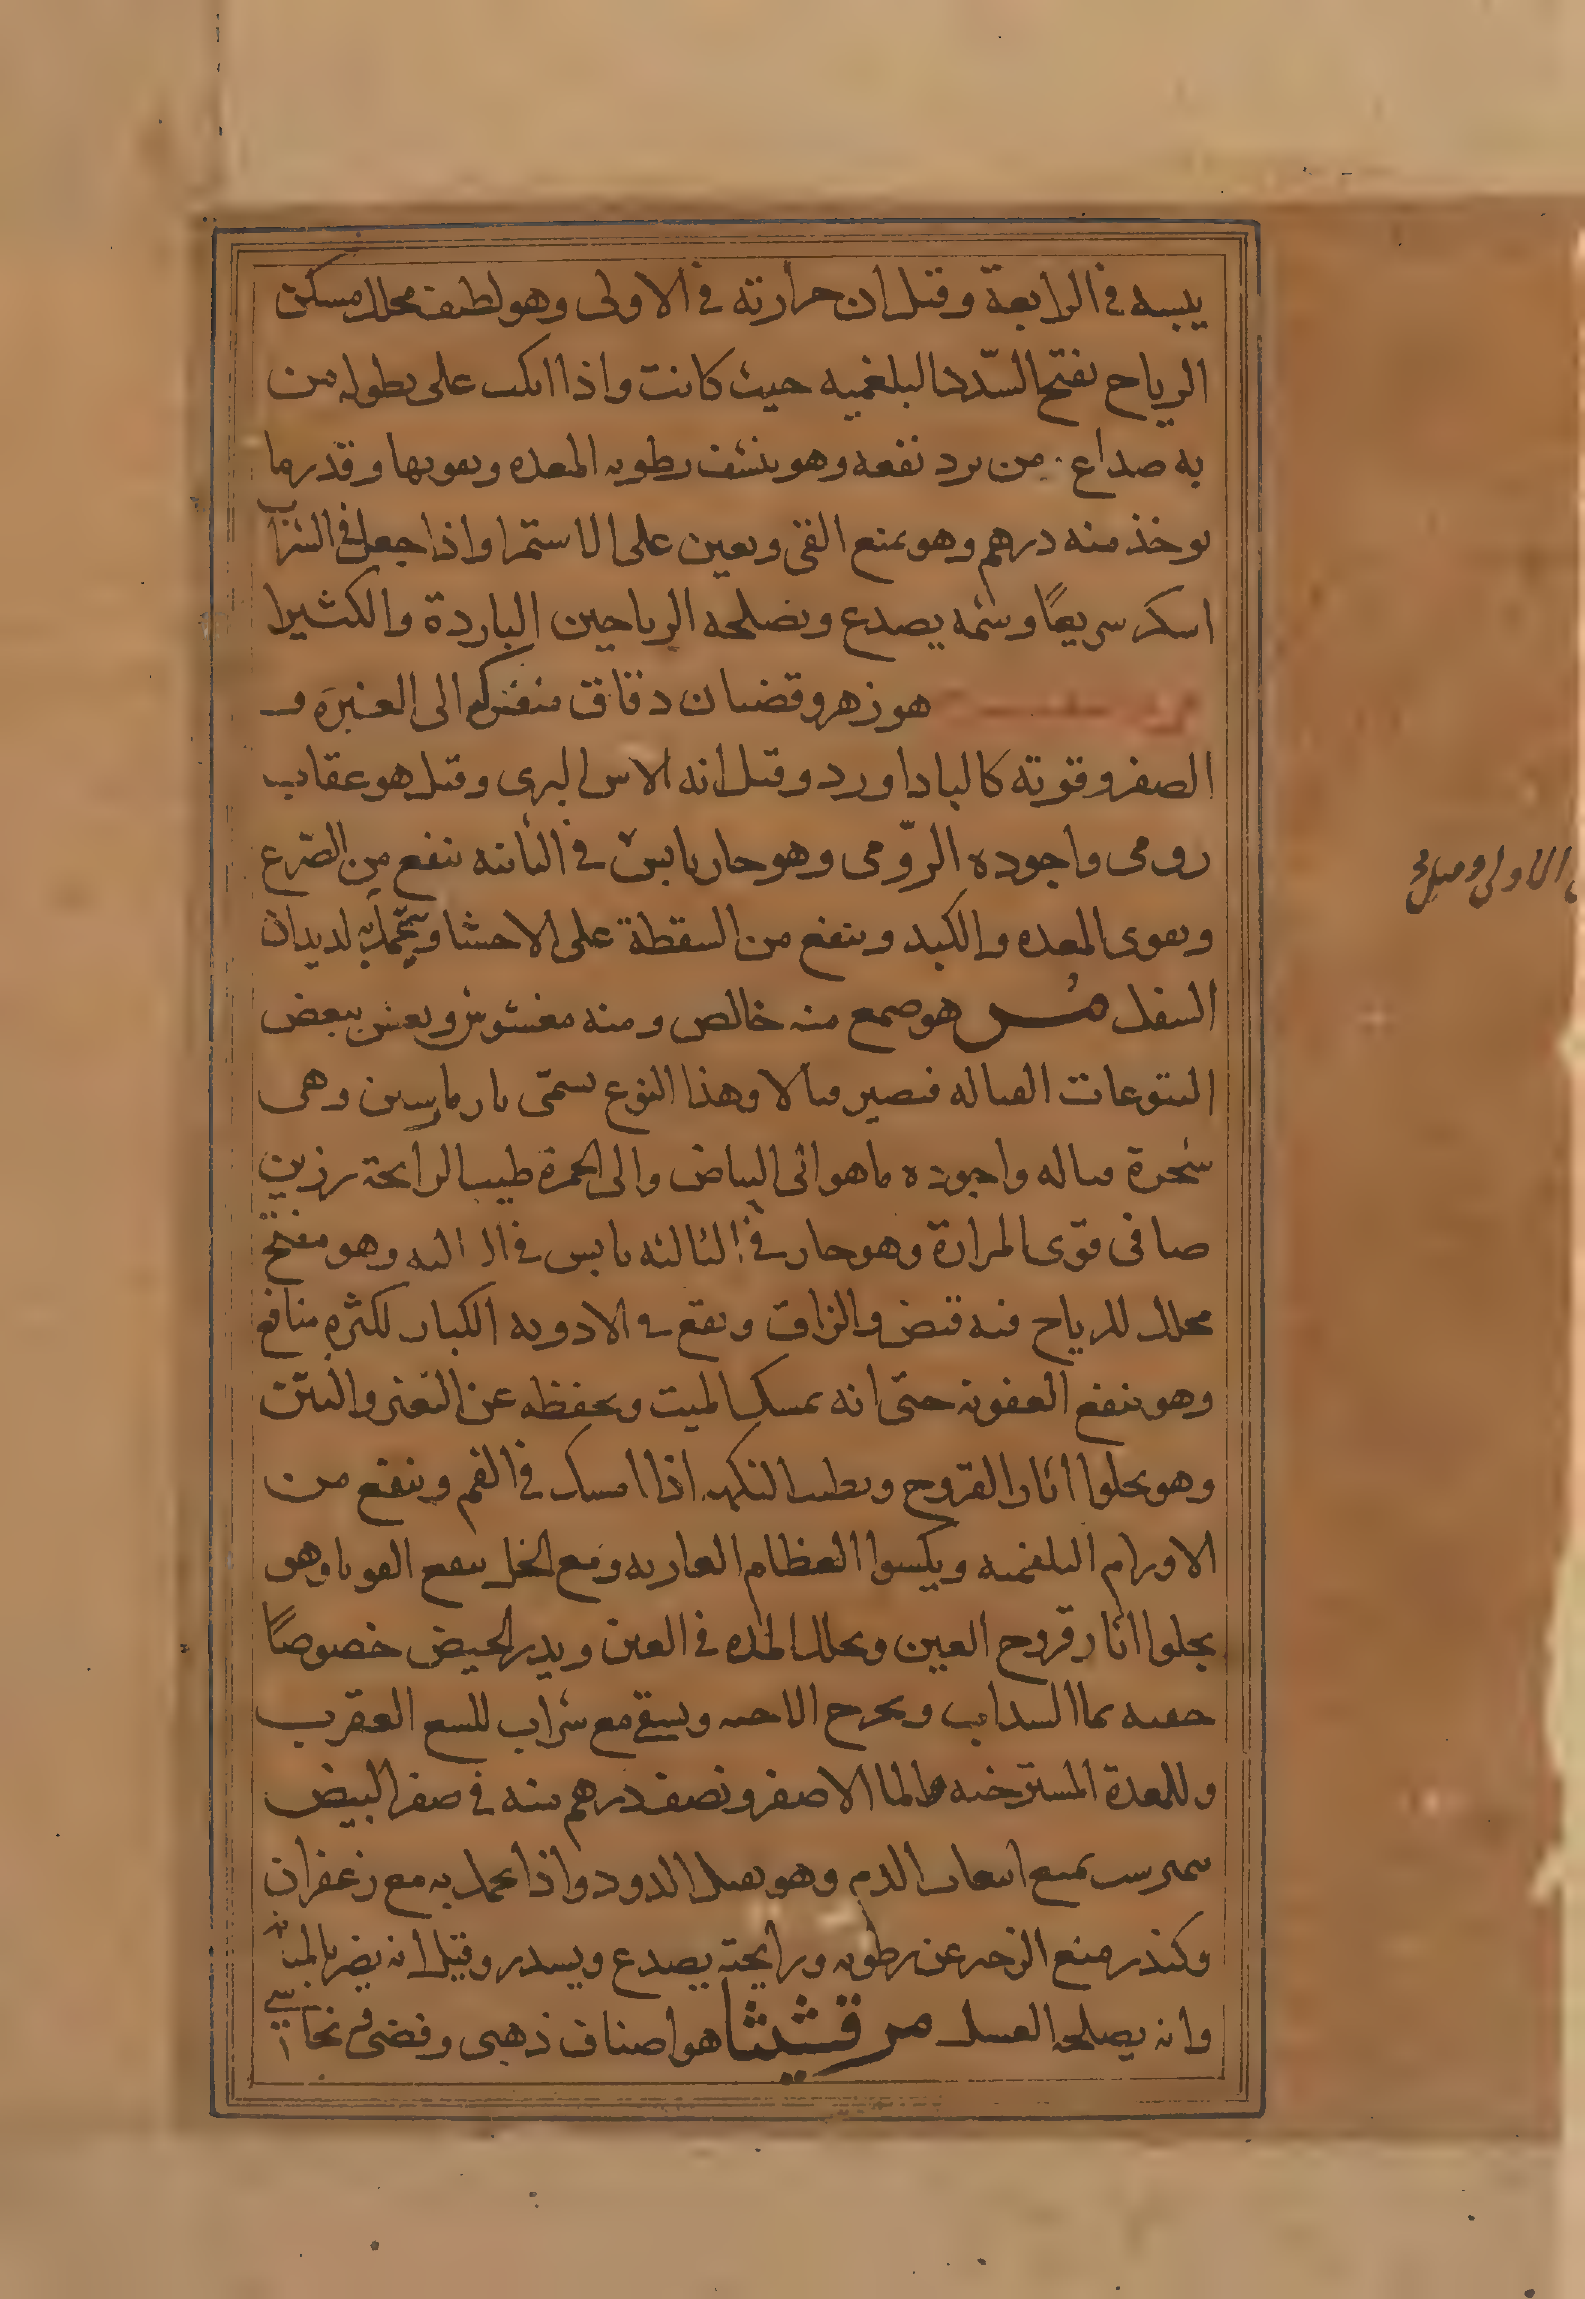 يبسه في الرابعة وقيل ان حرارته في الاولى وهو لطيف محلل مسكن
الرياح يفتح السّدد البلغميه حيث كانت واذا انكب على بطوله من
به صداع من برد نفعه وهو ينشف رطوبه المعده ويقويها وقدر ما
يوخذ منه درهم وهو يمنع القي ويعين على الاستمرا واذا جعل في الشراب
اسكر سريعًا وشمه يصدع ويصلحه الرياحين الباردة والكثيرا
هو زهر وقضبان دقاق منفركه الى الغبرَه و
الصفر وقوته كالباداورد وقيل انه الاس البرى وقيل هو عقاب
رومى واجوده الرّومى وهو حار يابس في الثانيه ينفع من الصّرع
ويقوى المعده والكبد وينفع من السقطة على الاحشا ويتحّمل به لديدان
السفل مُر هو صمغ منه خالص ومنه مغشوش ويغش ببعض
اليتوعات القتاله فيصير قتالا وهذا النوع يسمّى وهى
شجرة قتاله واجوده ما هو الى البياض والى الحمرة طيب الرايحة رزين
صافى قوى المرارة وهو حار في الثالثه يابس في الثانيه وهو مفتح
محلل للرياح فيه قبض والزاق ويقع في الادويه الكبار لكثره منافع
وهو ينفع العفونه حتى انه يمسك الميت ويحفظه عن التغير والنتن
وهو يجلوا اثار القروح ويطيب النكهه اذا امسك في الفم وينفع من
الاورام البلغميه ويكسوا العظام العاريه ومع الخل ينفع القوبا وهو
يجلوا اثار قروح العين ويحلل المده في العين ويدر الحيض خصوصًا
حقنه بما السداب ويخرج الاجنه ويسقى مع شراب للسع العقرب
وللمعدة المسترخيه والما الاصفر ونصف درهم منه في صفر البيض
يمنع انبعاث الدم وهو يقتل الدود واذا تحمل به مع زعفران
وكندر منع الزحير عن رطوبه ورايحته يصدع ويسدر وقيل انه يضر بالمثانه
وانه يصلحه العسل مرقشيثا هو اصناف ذهبى وفضى ونحاسي
الاولى